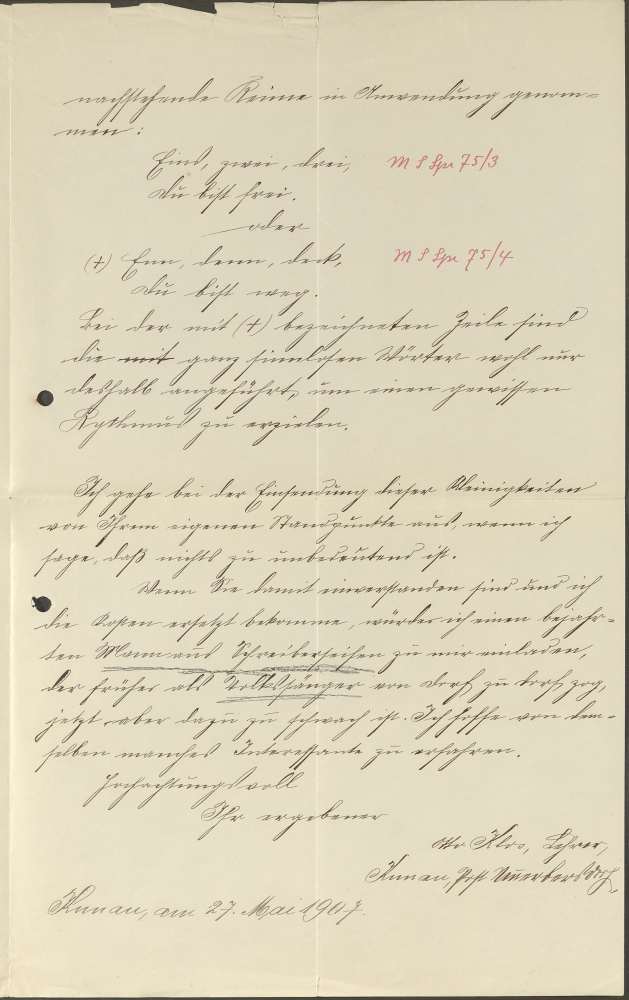 nachstehende Reime in Anwendung genom=
men:
Eins, zwei, drei, M S Spr 75/3
Du bist frei.
oder
(+) Enn, denn, deck, M S Spr 75/4
Du bist weg.
Bei der mit (+) bezeichneten Zeile sind
die mit ganz sinnlosen Wörter wohl nur
deshalb angeführt, um einen gewissen
Rythmus zu erzielen.
Ich gehe bei der Einsendung dieser Kleinigkeiten
von Ihrem eigenen Standpunkte aus, wenn ich
sage, daß nichts zu unbedeutend ist.
Wenn Sie damit einverstanden sind und ich
die Kosten ersetzt bekomme, würde ich einen bejahr=
ten Mann aus Schreiberseifen zu mir einladen,
der früher als Volkssänger von Dorf zu Dorf zog,
jetzt aber dazu zu schwach ist. Ich hoffe von dem=
selben manches Interessante zu erfahren.
Hochachtungsvoll
Ihr ergebener
Otto Lehrer,
Post
am 27. Mai 1907.